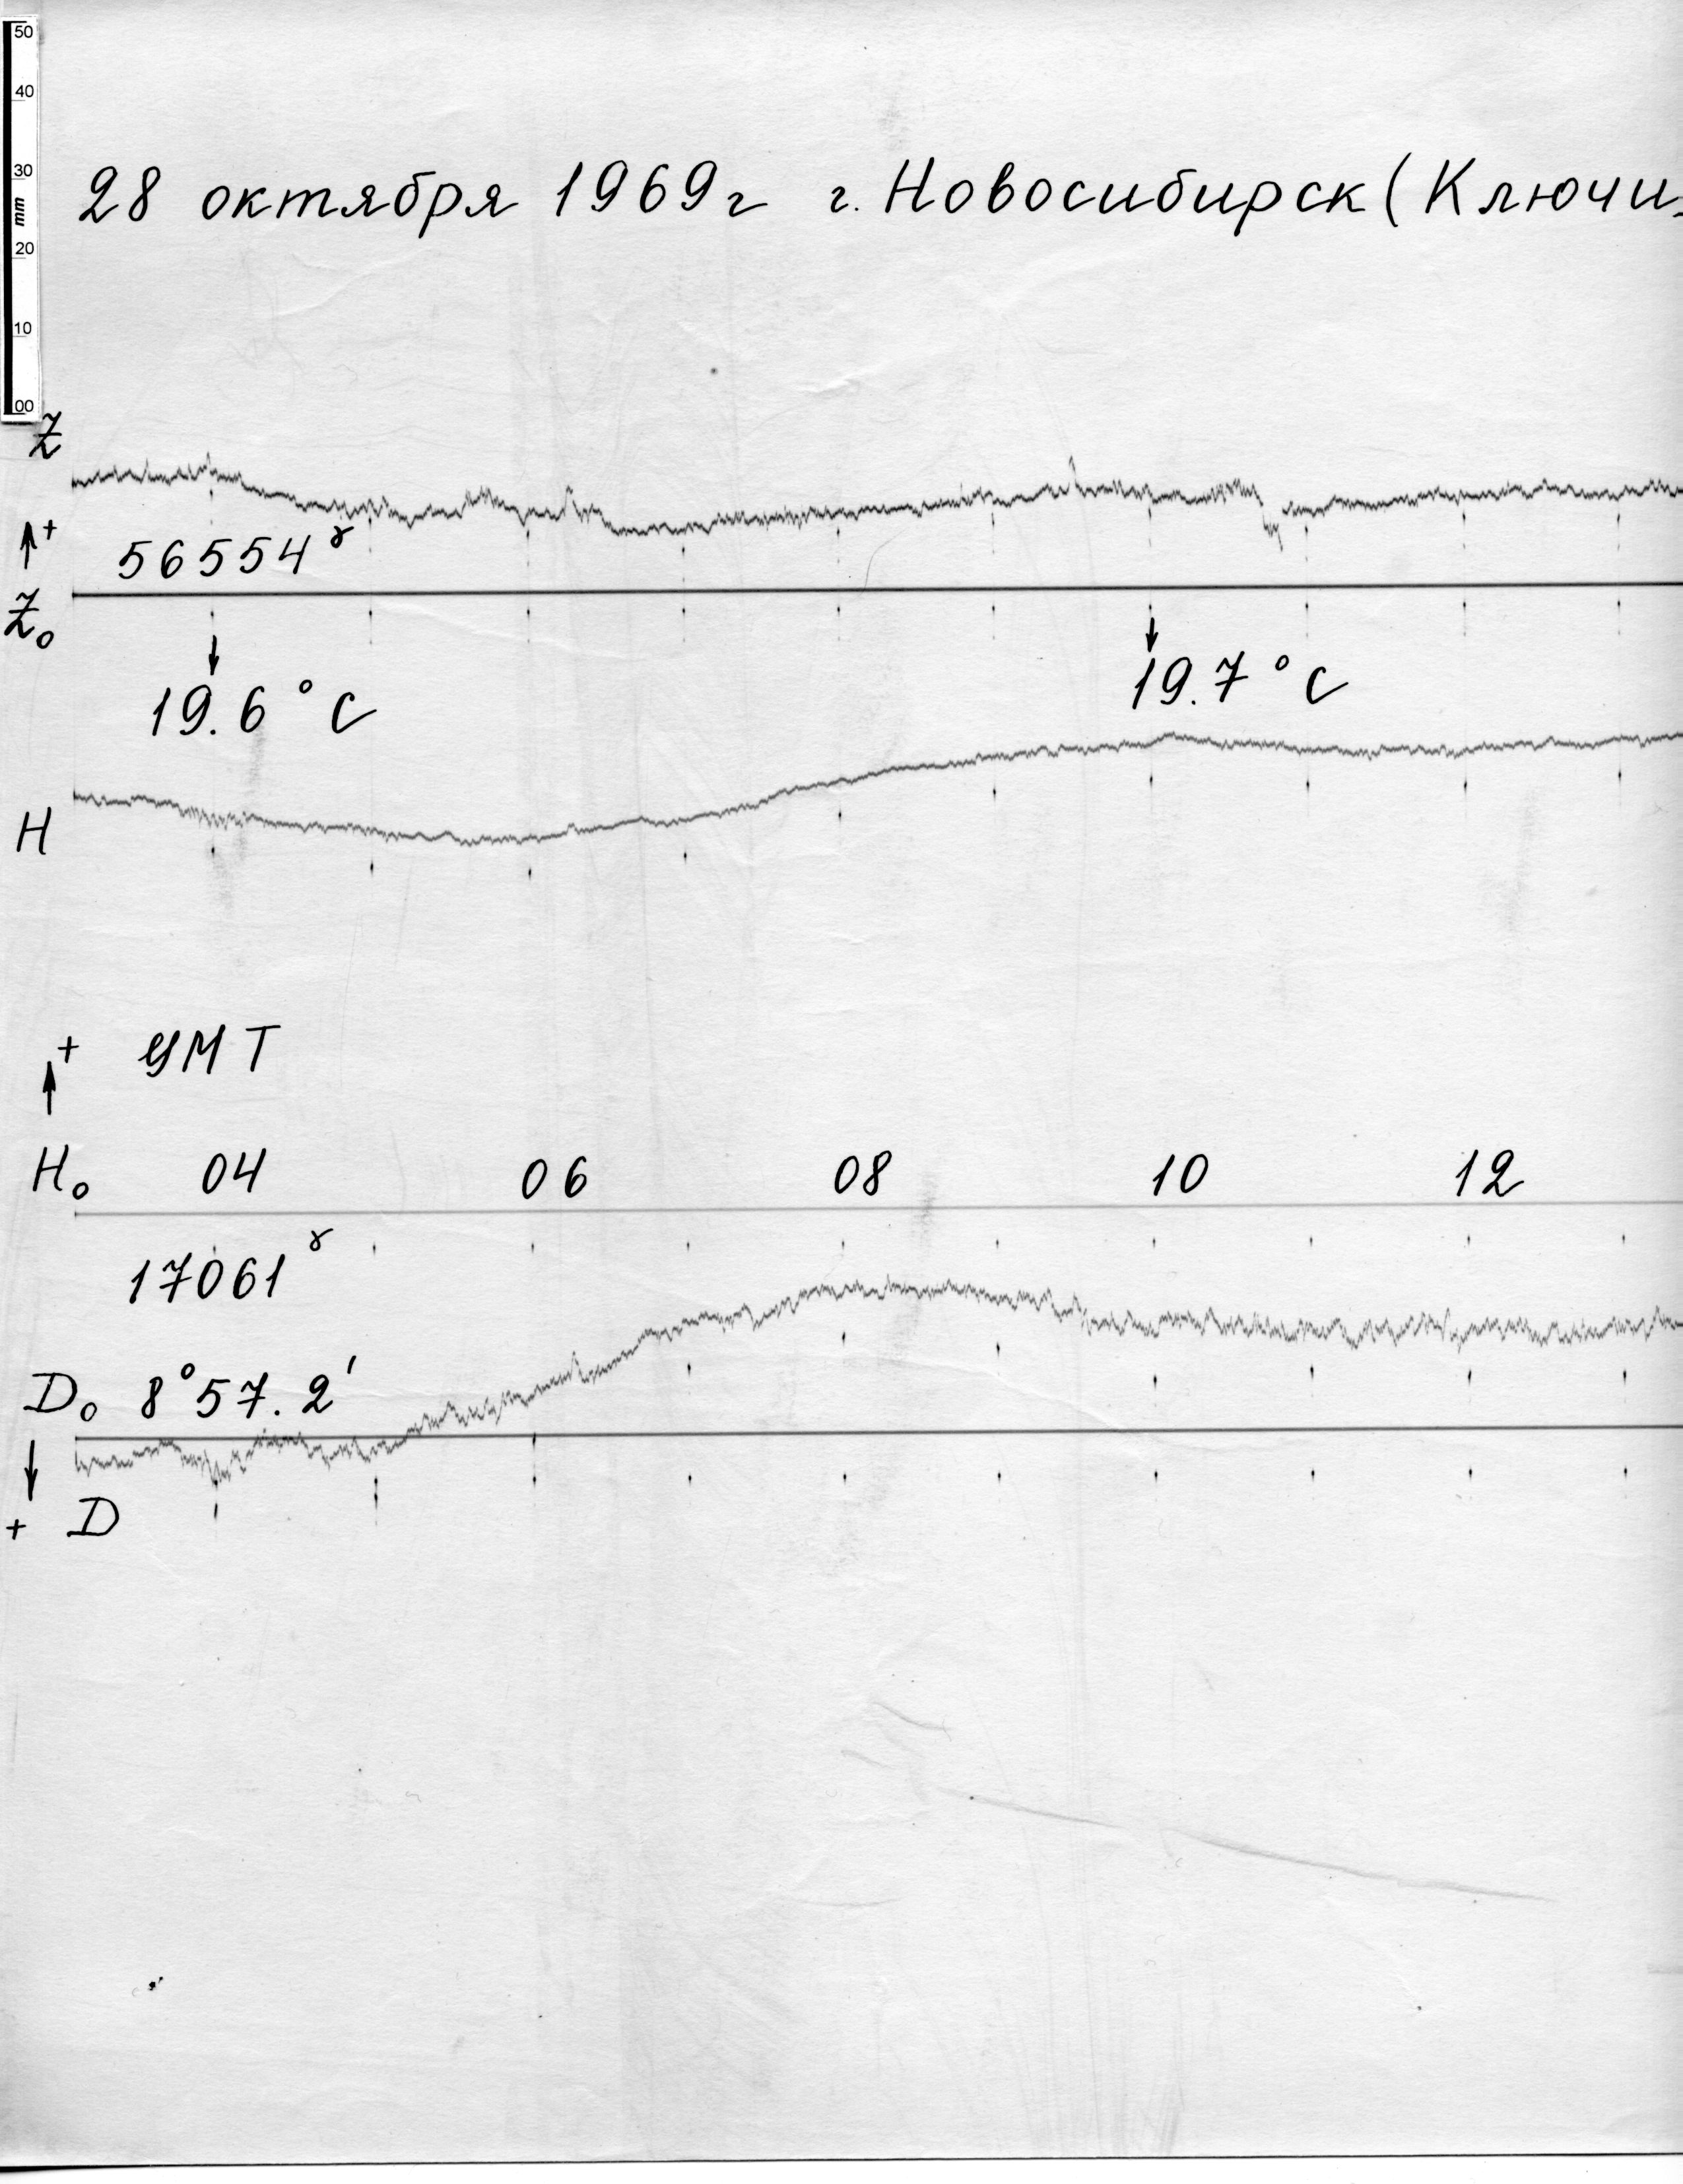 50
40
30
mm
20
10
00
28 октября 1969г г. Новосибирск (Ключи
Z
+
56554γ
Z₀
19.6°C 19.7°C
H
+ УМТ
H₀ 04 06 08 10 12
17061γ
D₀ 8°57.2'
+ D